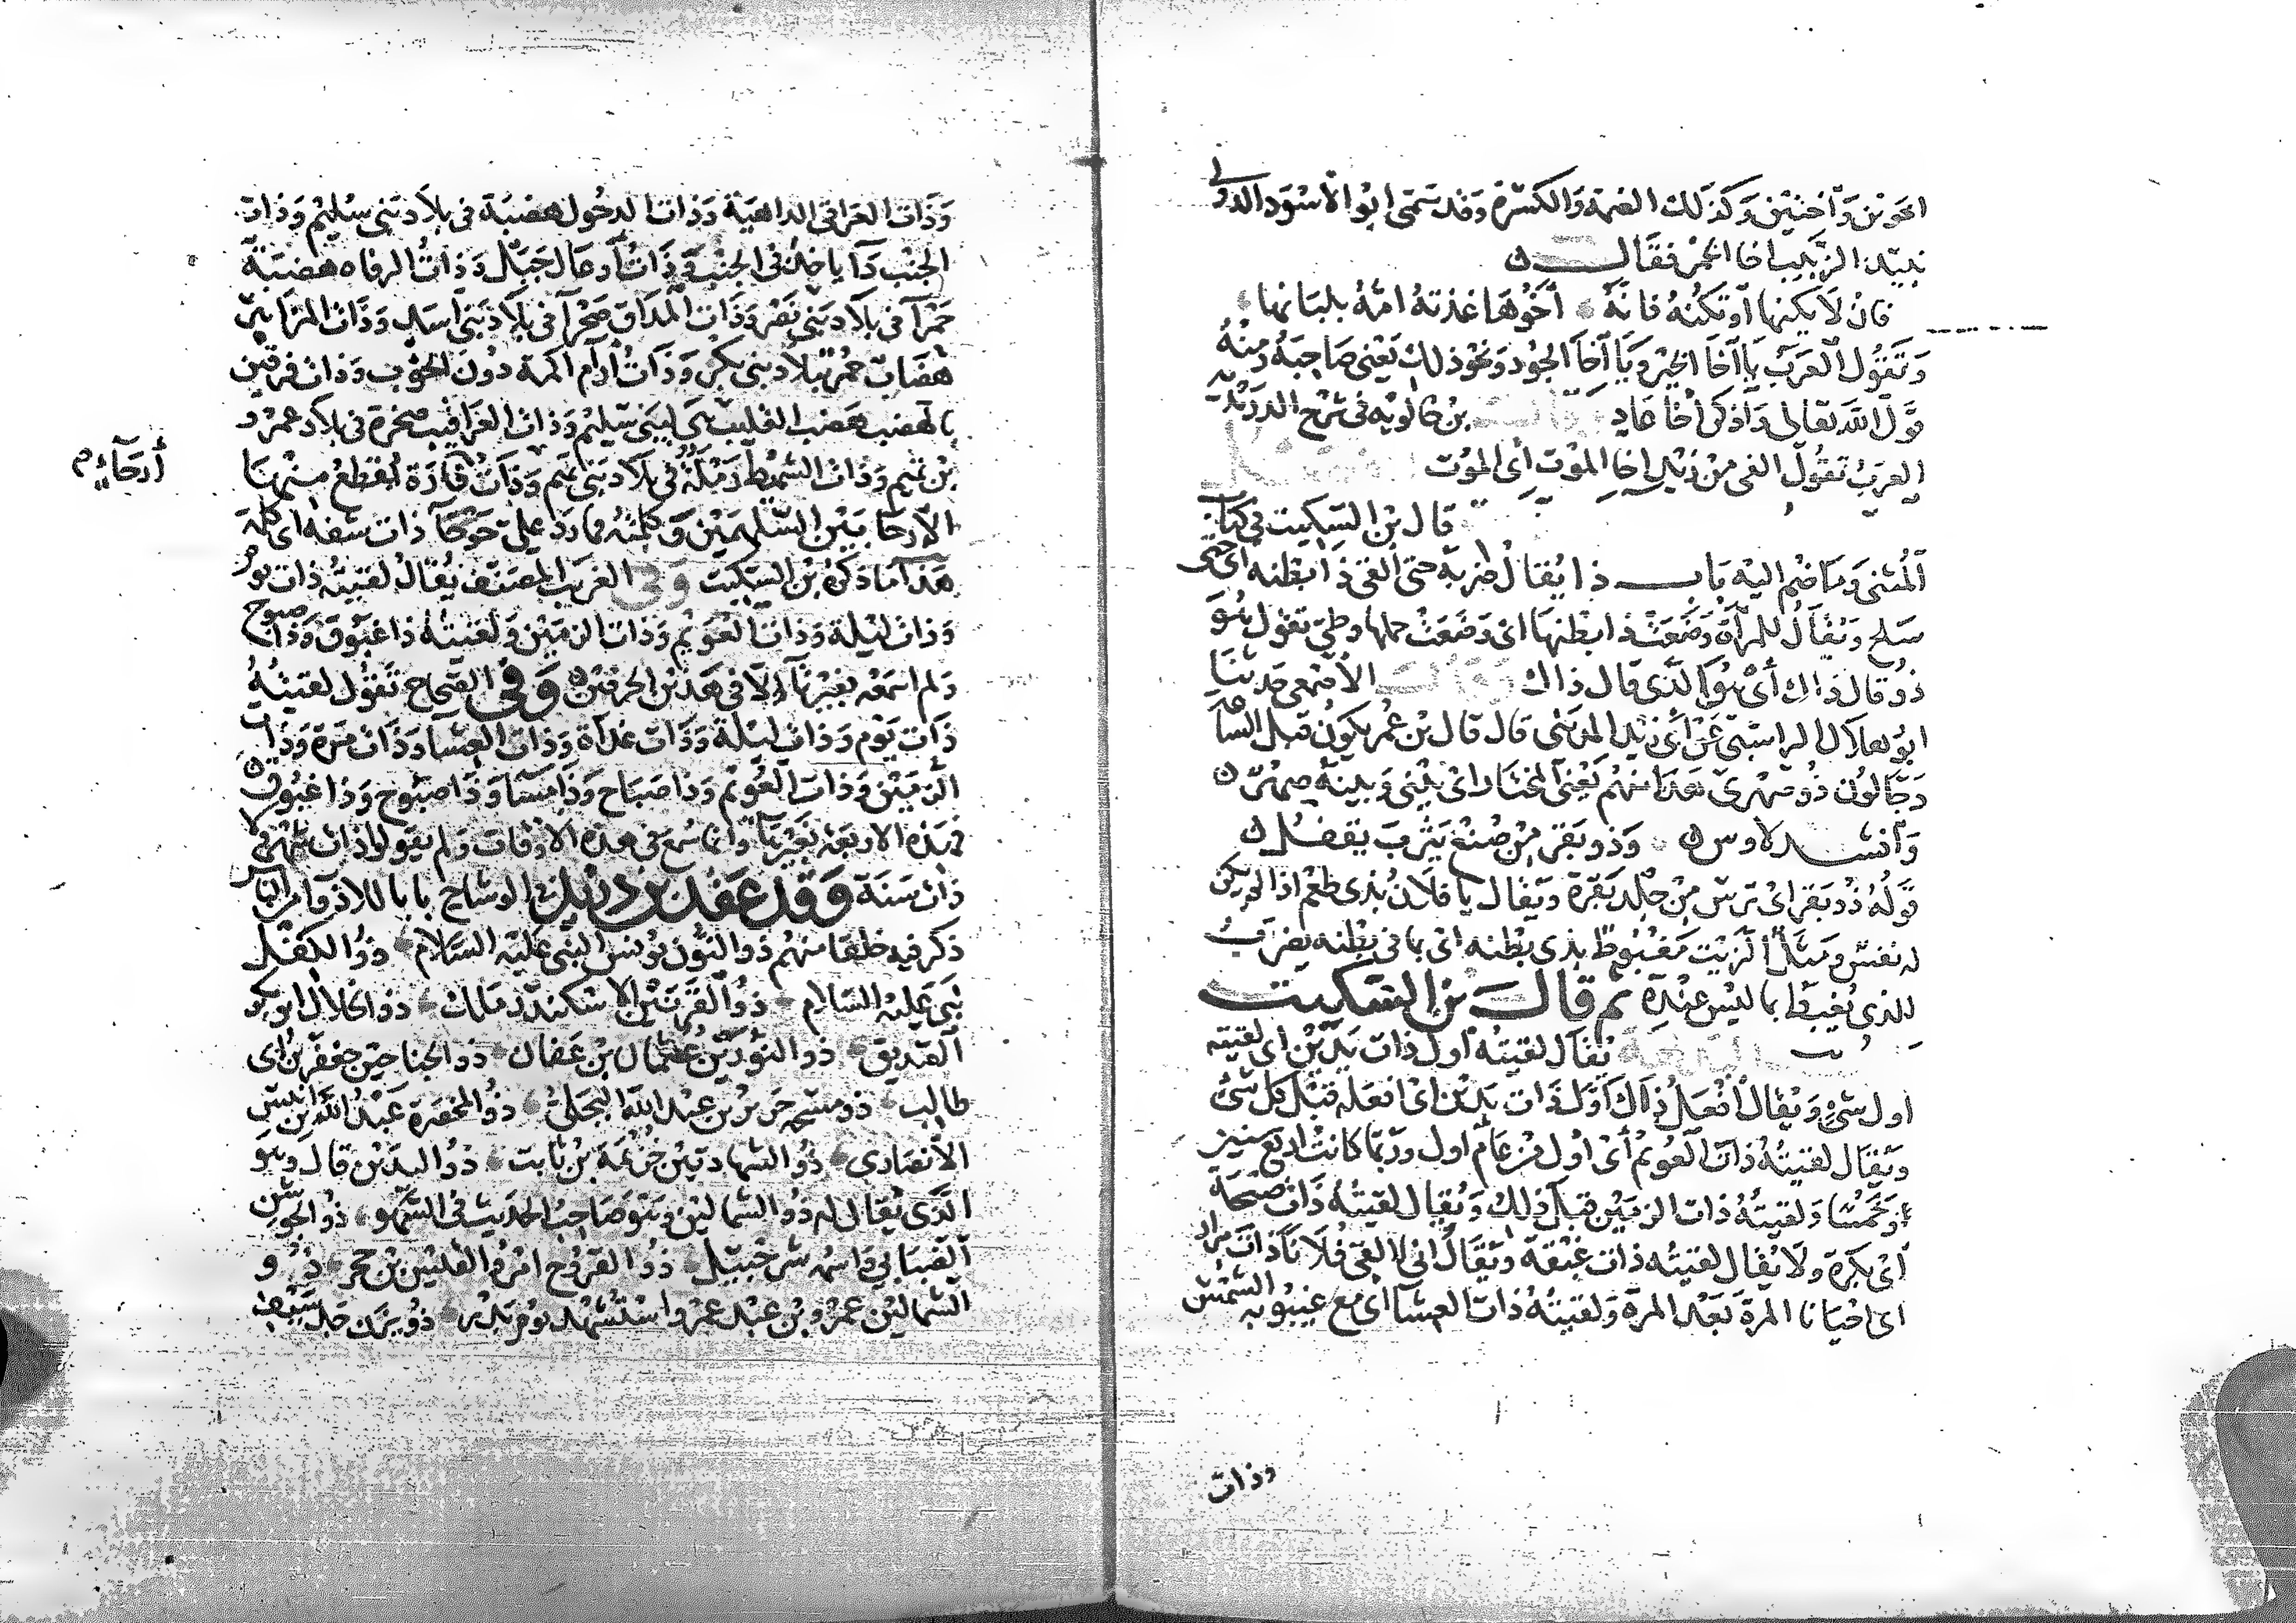 اخوين واختين وكذلك الغمة والكسرة وقد سمى ابو الاسود الدولى
نبيذ الزبيب اخا الخمر فقال
فان لا يكنها او تكنه فانه اخوها غذته امه بلبانها
وتقول العرب يا اخا الخير ويا اخا الجود ونحو ذلك يعنى صاحبه ومنه
قول الله تعالى واذكر اخا عاد قال بن خالويه فى شرح الدريدية
العرب تقول القى من زيد اخا الموت اى الموت
قال بن السكيت فى كتاب
المثنى وما ضم اليه باب ذا يقال ضربه حتى القى ذا بطنه اى حتى
سلح ويقال للمرأة وضعت ذا بطنها اى وضعت حملها وطى تقول هو
ذو قال ذاك أى هو الذى قال ذاك وقال الاصمعى حدثنا
ابو هلال الراسبى عن أبى زيد المدينى قال قال بن عمر يكون قبل الساعة
دجالون ذو صهرى هذا منهم يعنى المختار اى بينى وبينه صهر
وانشد لاوس وذو بقر من صنع يثرب يقفل
قوله ذو بقر اى ترس من جلد بقرة ويقال يا فلان بذى طعم اذا لم يكن
له نفس ومثل الزيت مغبوط بذى بطنه اى بما فى بطنه يضرب
للذى يغبط بما ليس عنده ثم قال بن السكيت
يقال لقيته أول ذات يدين اى لقيته
اول شىء ويقال أفعل ذاك أول ذات يدين اى افعله قبل كل شىء
ويقال لقيته ذات العويم أى أول من عام اول وربما كانت اربع سنين
او خمسا ولقيته ذات الزمين قبل ذلك ويقال لقيته ذات صبحة
اى بكرة ولا يقال لقيته ذات غبقة ويقال انى لالقى فلانا ذات مرار
اى احيانا المرة بعد المرة ولقيته ذات العشا اى مع غيبوبة الشمس
وذات
وذات العراقى الداهية وذات الدخول هضبة فى بلاد بنى سليم وذات
الجنب داء ياخذ فى الجنب وذات أوعال جبل وذات الرفاه هضبة
حمرا فى بلاد بنى نصر وذات المداق صحرا فى بلاد بنى اسد وذات المزاهير
هضاب حمر ببلاد بنى بكر وذات أرام اكمة دون الحوءب وذات فرقين
بالهضب هضب القليب هى لبنى سليم وذات العراقيب صخرة فى بلاد عمرو
بن تميم وذات الشميط رملة فى بلاد بنى تميم وذات قارة تقطع منها
الارحا بين السليمين وكلمته فما رد على حوجا ذات شفه اى كلمة
هذا ما ذكره بن السكيت وفى الغريب المصنف يقال لقيته ذات يوم
وذات ليلة وذات العويم وذات الزمين ولقيته ذا غبوق وذا صبوح
ولم اسمعه بغيرتا الا فى هذين الحرفين وفى الصحاح تقول لقيته
ذات يوم وذات ليلة وذات غداة وذات العشا وذات مرة وذات
الزمين وذات العويم وذا صباح وذا مسا وذا صبوح وذا غبوق
فهذه الاربعة بغيرتا وانما سمع فى هذه الاوقات ولم يقولوا ذات شهر ولا
ذات سنة وقد عقد بن دريد فى الوشاح بابا للاذوا من الناس
ذكر فيه خلقا منهم ذو النون يونس النبى عليه السلام ذو الكفل
نبى عليه السلام ذو القرنين الاسكندر ملك ذو الخلال ابو بكر
الصديق ذو النورين عثمان بن عفان ذو الجناحين جعفر بن ابى
طالب ذو مسحة جرير بن عبد الله البجلى ذو المخصرة عبد الله بن انيس
الأنصارى ذو الشهادتين خزيمة بن ثابت ذو اليدين قال وهو
الذى يقال له ذو الشمالين وهو صاحب الحديث فى السهو ذو الجوشن
الضبابى واسمه شرحبيل ذو القروح امرو القيس بن حجر ذو
الشمالين عمرو بن عبد عمرو استشهد يوم بدر ذو يزن جد سيف
أرحاء م